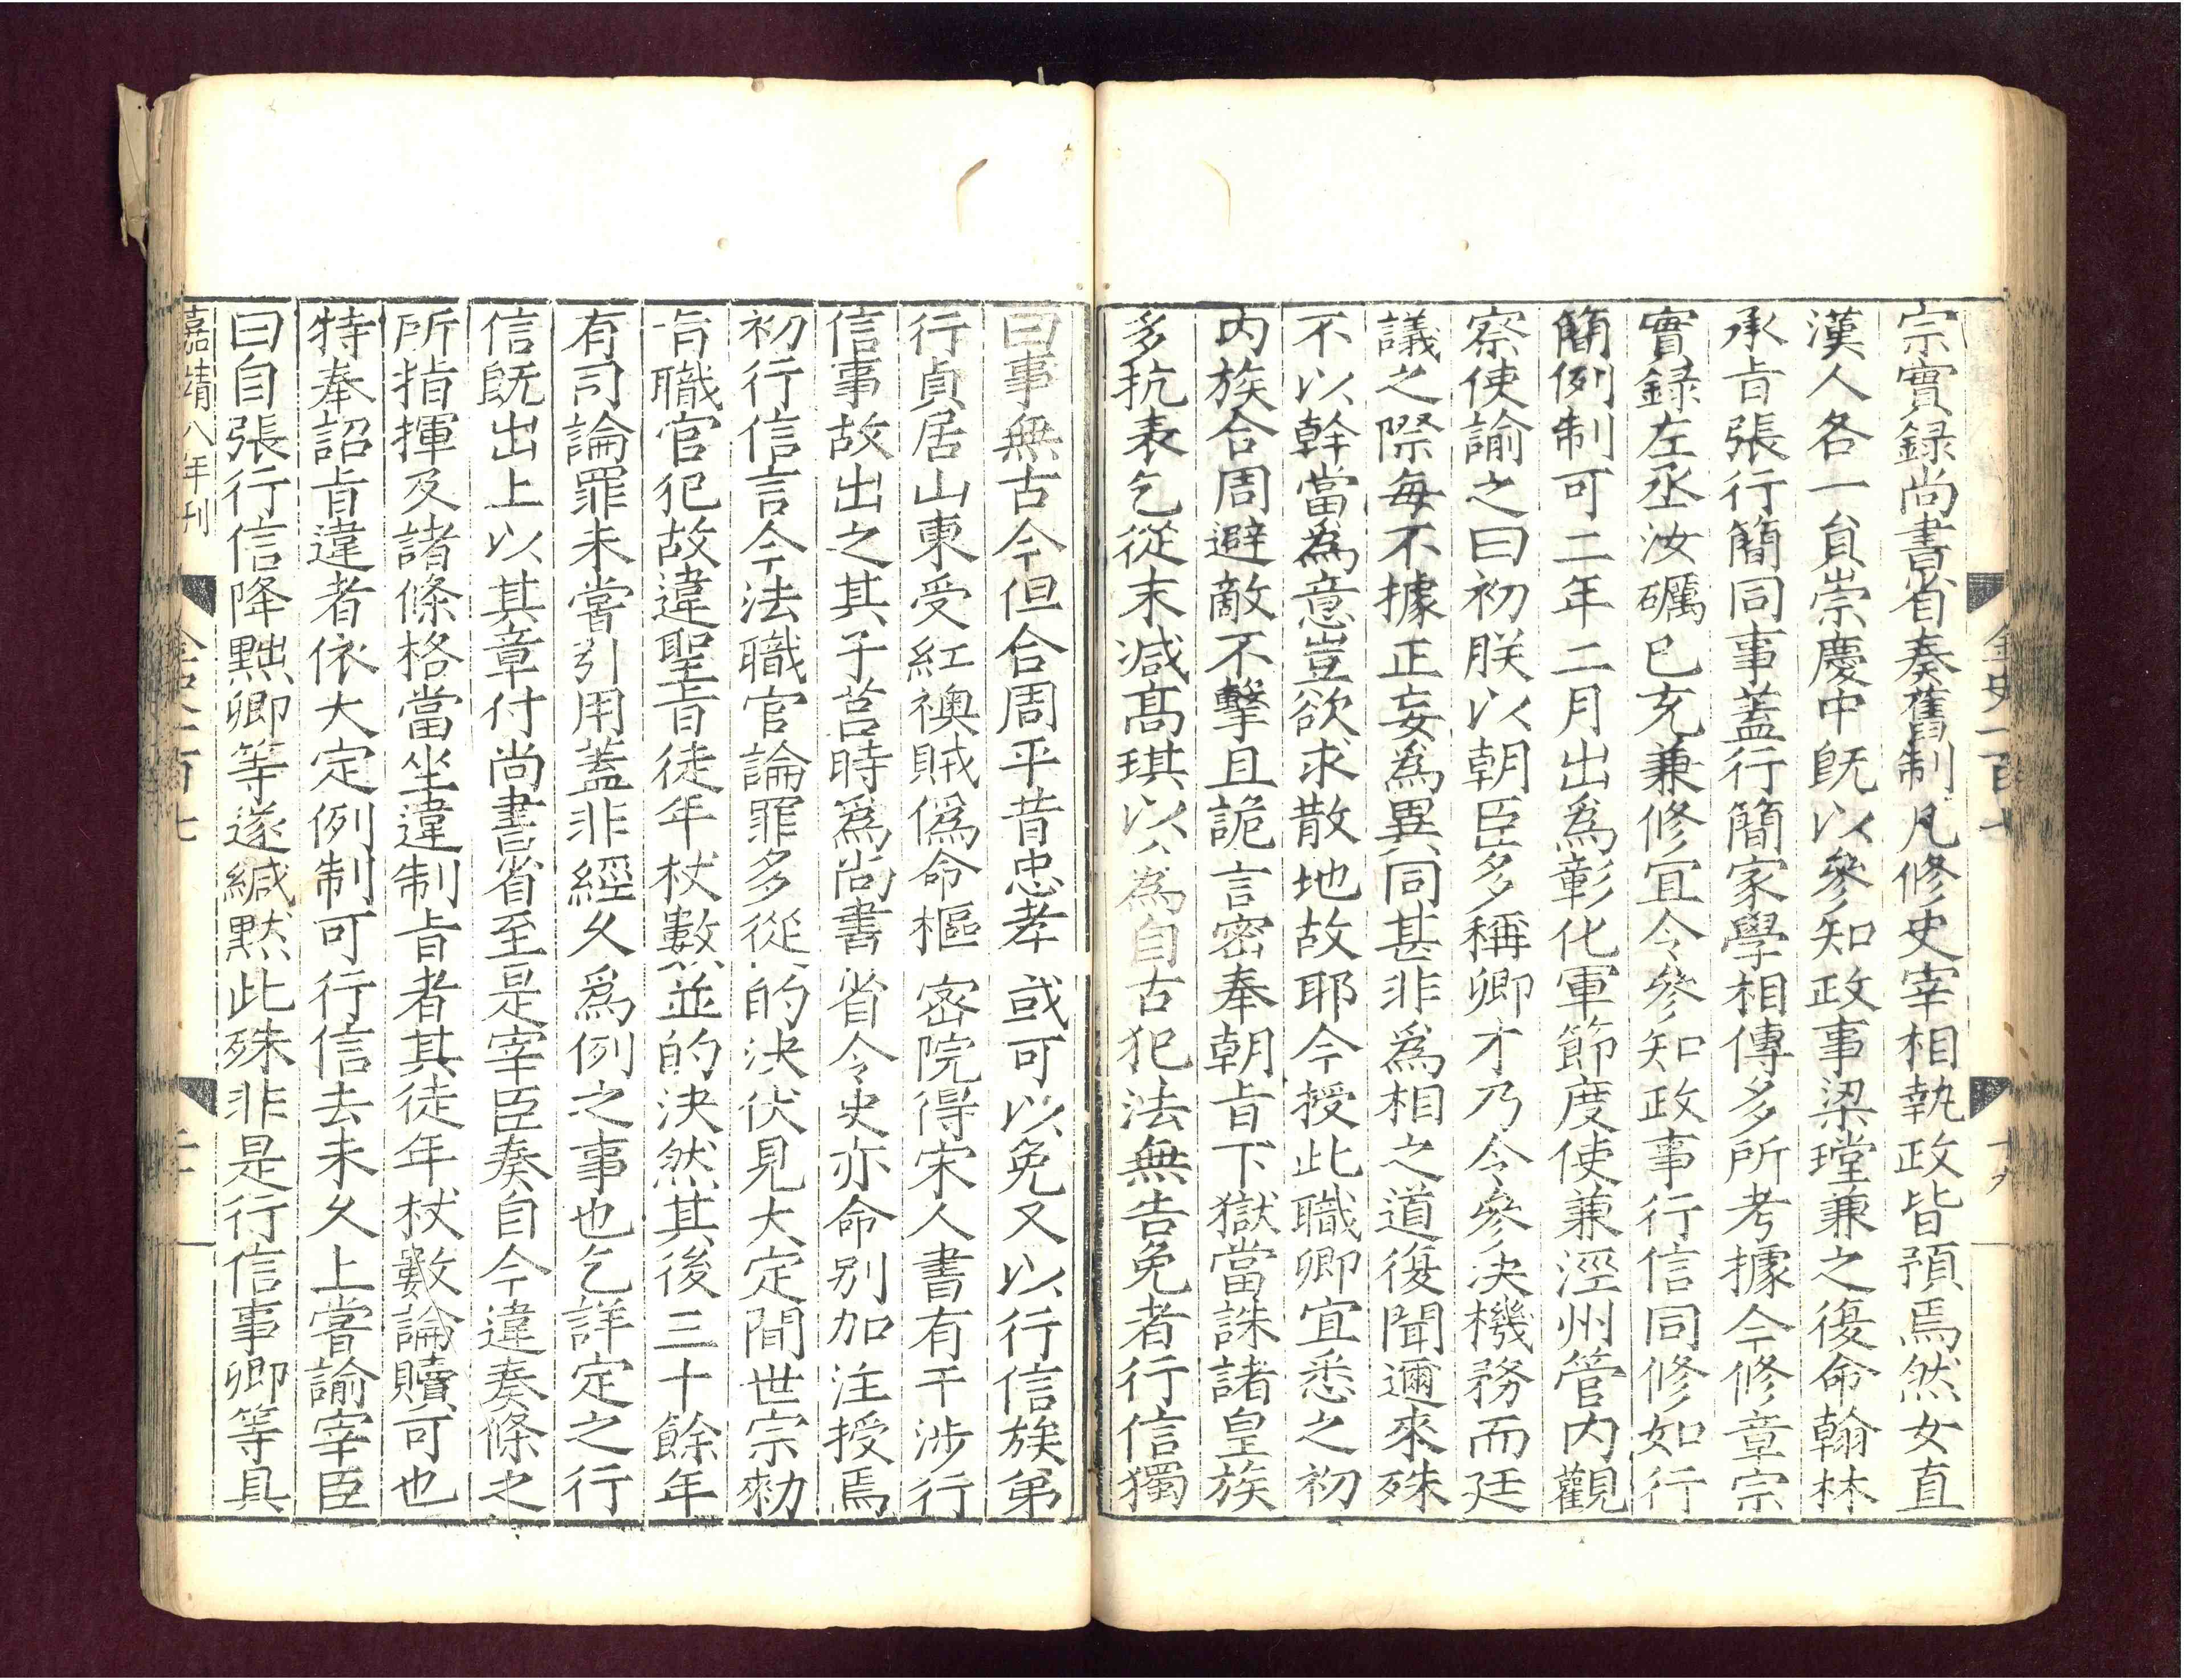 金史一百七
十九
宗實録尚書省奏舊制凡修史宰相執政皆預焉然女直
漢人各一員崇慶中旣以參知政事梁瑝兼之復命翰林
承旨張行簡同事蓋行簡家學相傳多所考據今修章宗
實録左丞汝礪已充兼修宜令參知政事行信同修如行
簡例制可二年二月出爲彰化軍節度使兼涇州管内觀
察使諭之曰初朕以朝臣多稱卿才乃令參決機務而廷
議之際每不據正妄爲異同甚非爲相之道復聞邇來殊
不以幹當爲意豈欲求散地故耶今授此職卿宜悉之初
内族合周避敵不擊且詭言密奉朝旨下獄當誅諸皇族
多抗表乞從末減高琪以爲自古犯法無告免者行信獨
曰事無古今但合周平昔忠孝或可以免又以行信族弟
行貞居山東受紅襖賊僞命樞密院得宋人書有干涉行
信事故出之其子莒時爲尚書省令史亦命別加注授焉
初行信言今法職官論罪多從的決伏見大定間世宗勑
旨職官犯故違聖旨徒年杖數並的決然其後三十餘年
有司論罪未嘗引用蓋非經久爲例之事也乞詳定之行
信旣出上以其章付尚書省至是宰臣奏自今違奏條之
所指揮及諸條格當坐違制旨者其徒年杖數論贖可也
特奉詔旨違者依大定例制可行信去未久上嘗諭宰臣
曰自張行信降黜卿等遂緘默此殊非是行信事卿等具
嘉靖八年刊
金史一百七
二十